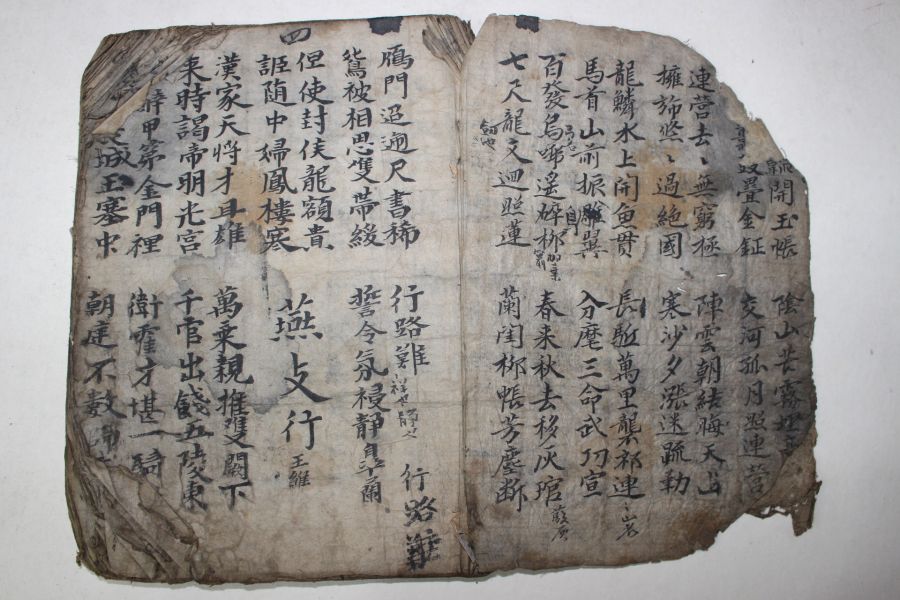 開玉帳 陰山苦霧埋
疊金鉦 交河孤月照連營
連營去〻無窮極 陣雲朝結晦天山
擁旆悠〻過絕國 寒沙夕漲迷疏動
龍鱗水上開魚貫 長駈萬里襲祁連 〻山名
馬首山前振雕翼 分麾三命武功宣
百發烏號遙碎柳 春来秋去移灰琯
七尺龍文迴照蓮 蘭閨柳帳芳塵斷
四
鴈門迢遞尺書稀 行路難 行路難
鴛被相思雙帶緩 誓令氛祲靜皐蘭
但使封侯龍額貴
詎随中婦鳳樓寒 燕支行 王維
漢家天將才且雄 萬乘親推雙闕下
来時謁帝明光宮 千官出餞五陵東
辭甲第金門裡 衛霍才堪一騎
城玉塞中 朝廷不數